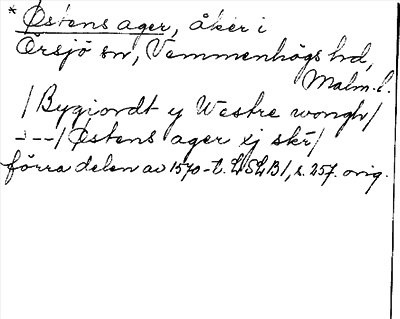 * Østens ager, åker i
Örsjö sn, Vemmenhögs hd,
Malm. l.
/Bygiordt y Westre wongh/
---/Østens ager xj skr/
förra delen av 1570-t. LSLB1, s. 257. orig.